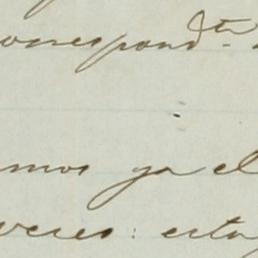 correspondte.
mos ya el
veres: esta